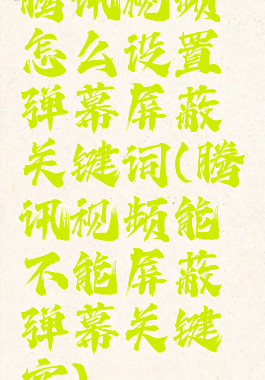 腾讯视频
怎么设置
弹幕屏蔽
关键词(腾
讯视频能
不能屏蔽
弹幕关键